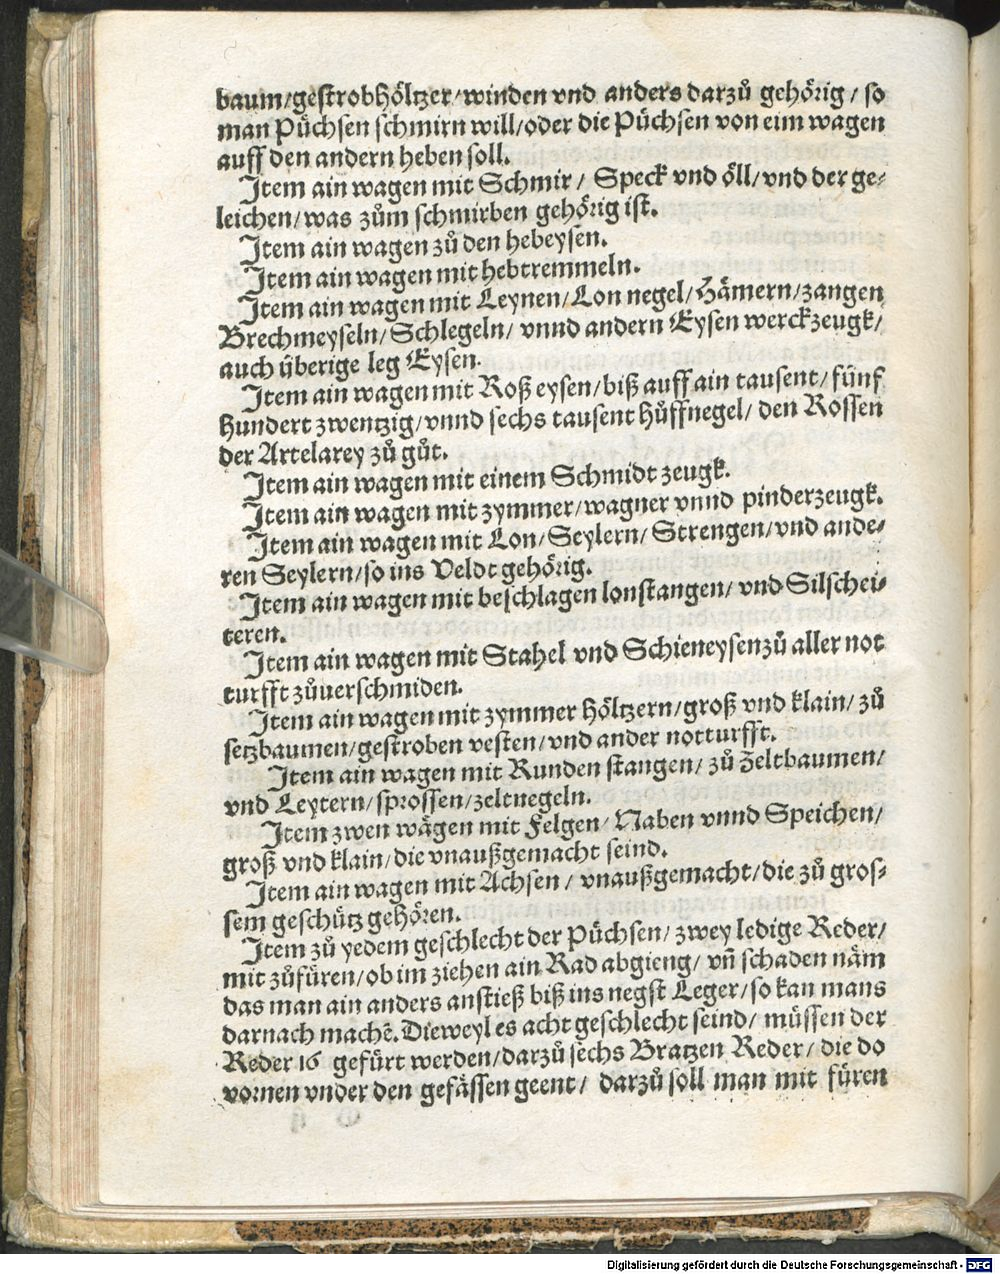 baum/gestrobhöltzer/winden vnd anders darzů gehörig / so
man Püchsen schmirn will/oder die Püchsen von eim wagen
auff den andern heben soll.
Item ain wagen mit Schmir / Speck vnd öll/vnd der ge-
leichen/was zům schmirben gehörig ist.
Item ain wagen zů den hebeysen.
Item ain wagen mit hebtremmeln.
Item ain wagen mit Leynen/Lon negel/Hämern/zangen
Brechmeyseln/Schlegeln/ vnnd andern Eysen werckzeugk/
auch überige leg Eysen.
Item ain wagen mit Roß eysen/biß auff ain tausent/fünf
hundert zwentzig/vnnd sechs tausent hůffnegel/den Rossen
der Artelarey zů gůt.
Item ain wagen mit einem Schmidt zeugk.
Item ain wagen mit zymmer/wagner vnnd pinderzeugk.
Item ain wagen mit Lon/Seylern/Strengen/vnd ande-
ren Seylern/so ins Veldt gehörig.
Item ain wagen mit beschlagen lonstangen/vnd Silschei-
teren.
Item ain wagen mit Stahel vnd Schieneysenzů aller not
turfft zůuerschmiden.
Item ain wagen mit zymmer höltzern/groß vnd klain/zů
setzbaumen/gestroben vesten/vnd ander notturfft.
Item ain wagen mit Runden stangen/zů Zeltbaumen/
vnd Leytern/sprossen/zeltnegeln.
Item zwen wägen mit Felgen/Naben vnnd Speichen/
groß vnd klain/die vnaußgemacht seind.
Item ain wagen mit Achsen / vnaußgemacht/die zů gros-
sem geschütz gehören.
Item zů yedem geschlecht der Püchsen/zwey ledige Reder/
mit zůfüren/ob im ziehen ain Rad abgieng/vn̄ schaden näm
das man ain anders anstieß biß ins negst Leger/so kan mans
darnach machē. Dieweyl es acht geschlecht seind/müssen der
Reder 16 gefürt werden/darzů sechs Bratzen Reder/die do
vornen vnder den gefässen geent/ darzů soll man mit füren
Digitalisierung gefördert durch die Deutsche Forschungsgemeinschaft - DFG